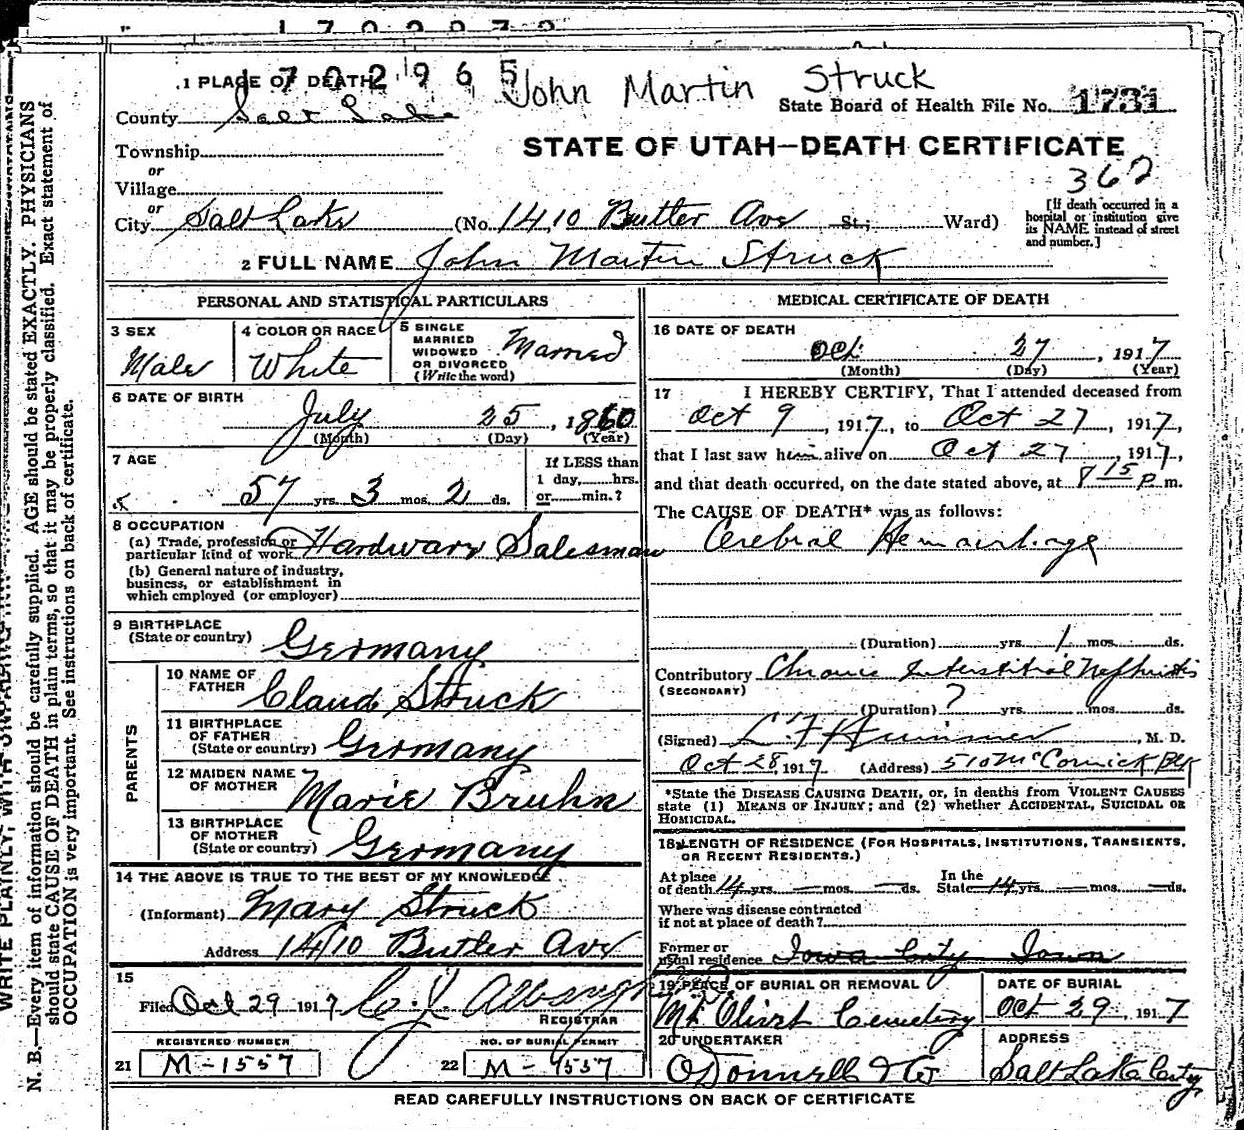 1702965
John Martin Struck
1 PLACE OF DEATH
County Salt Lake
State Board of Health File No. 1731
Township
or
Village
or
City Salt Lake (No. 1410 Butler Ave St.; Ward)
STATE OF UTAH—DEATH CERTIFICATE
362
[If death occurred in a hospital or institution give its NAME instead of street and number.]
2 FULL NAME John Martin Struck
PERSONAL AND STATISTICAL PARTICULARS
3 SEX
Male
4 COLOR OR RACE
White
5 SINGLE
MARRIED
WIDOWED
OR DIVORCED
(Write the word)
Married
6 DATE OF BIRTH
July 25, 1860
(Month) (Day) (Year)
7 AGE
57 yrs. 3 mos. 2 ds.
If LESS than
1 day, hrs.
or min.?
8 OCCUPATION
(a) Trade, profession or
particular kind of work Hardware Salesman
(b) General nature of industry,
business, or establishment in
which employed (or employer)
9 BIRTHPLACE
(State or country) Germany
PARENTS
10 NAME OF
FATHER Claud Struck
11 BIRTHPLACE
OF FATHER
(State or country) Germany
12 MAIDEN NAME
OF MOTHER Marie Bruhn
13 BIRTHPLACE
OF MOTHER
(State or country) Germany
14 THE ABOVE IS TRUE TO THE BEST OF MY KNOWLEDGE
(Informant) Mary Struck
Address 1410 Butler Ave
15
Filed Oct 29 1917
REGISTRAR
REGISTERED NUMBER
21 M-1557
NO. OF BURIAL PERMIT
22 M-1557
MEDICAL CERTIFICATE OF DEATH
16 DATE OF DEATH
Oct 27, 1917
(Month) (Day) (Year)
17 I HEREBY CERTIFY, That I attended deceased from
Oct 9, 1917, to Oct 27, 1917,
that I last saw him alive on Oct 27, 1917,
and that death occurred, on the date stated above, at 8 15 P m.
The CAUSE OF DEATH* was as follows:
Cerebral Hemorrhage
(Duration) yrs. 1 mos. ds.
Contributory Chronic Interstitial Nephritis
(SECONDARY)
(Duration) ? yrs. mos. ds.
(Signed) M. D.
Oct 28, 1917 (Address) 510 McCornick Blk
*State the DISEASE CAUSING DEATH, or, in deaths from VIOLENT CAUSES
state (1) MEANS OF INJURY; and (2) whether ACCIDENTAL, SUICIDAL OR
HOMICIDAL.
18 LENGTH OF RESIDENCE (FOR HOSPITALS, INSTITUTIONS, TRANSIENTS,
OR RECENT RESIDENTS.)
At place
of death 14 yrs. — mos. — ds.
In the
State 14 yrs. — mos. — ds.
Where was disease contracted
if not at place of death?
Former or
usual residence Iowa City Iowa
19 PLACE OF BURIAL OR REMOVAL
Mt Olivet Cemetery
DATE OF BURIAL
Oct 29, 1917
20 UNDERTAKER
O'Donnell & Co
ADDRESS
Salt Lake City
READ CAREFULLY INSTRUCTIONS ON BACK OF CERTIFICATE
N. B.—Every item of information should be carefully supplied. AGE should be stated EXACTLY. PHYSICIANS
should state CAUSE OF DEATH in plain terms, so that it may be properly classified. Exact statement of
OCCUPATION is very important. See instructions on back of certificate.